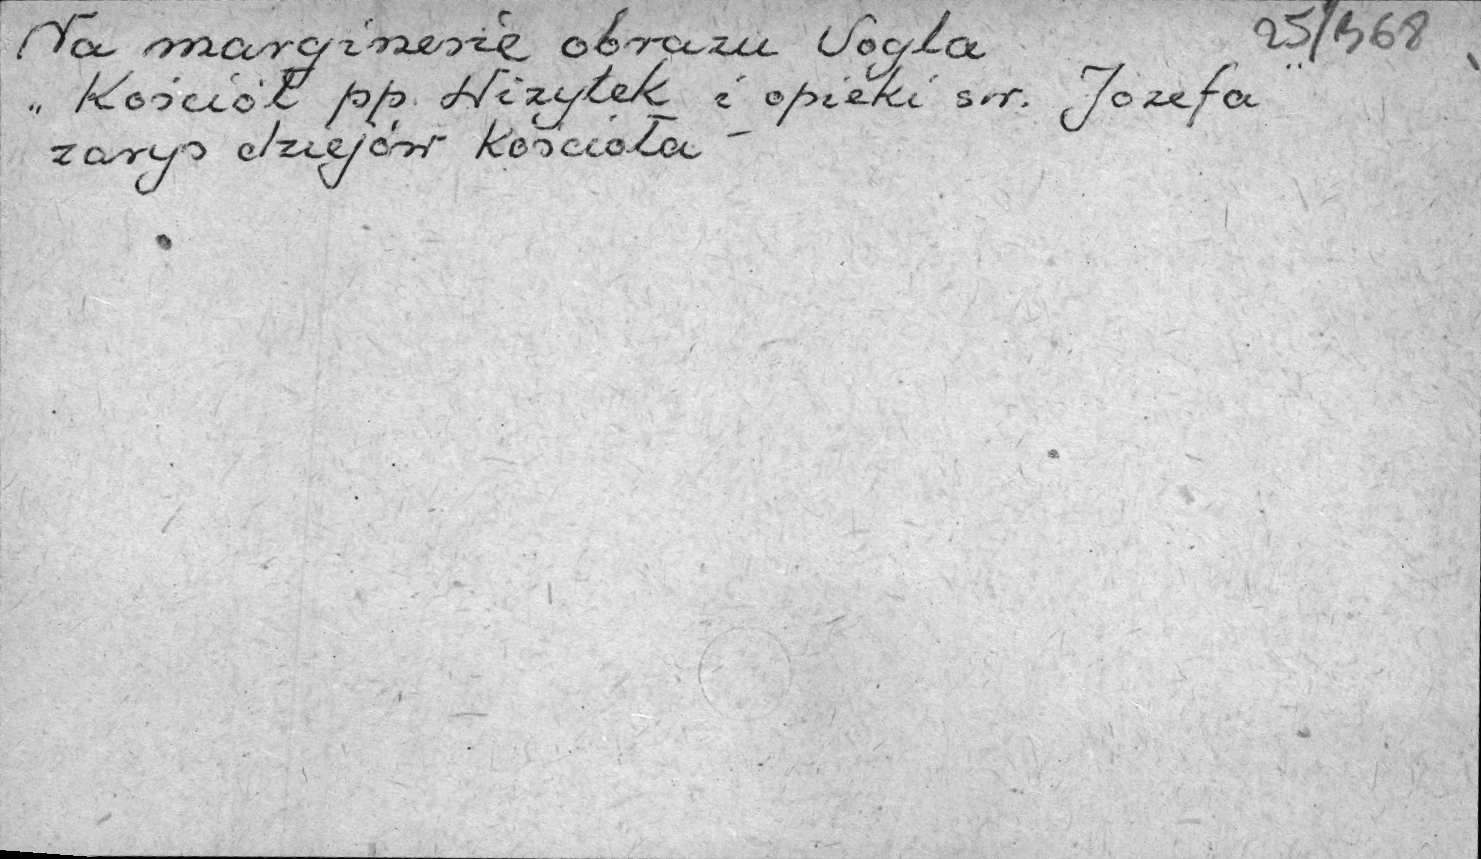 Na marginesie obrazu Vogla 25/B68
„Kościół pp. Wizytek i opieki św. Józefa"
zarys dziejów kościoła -